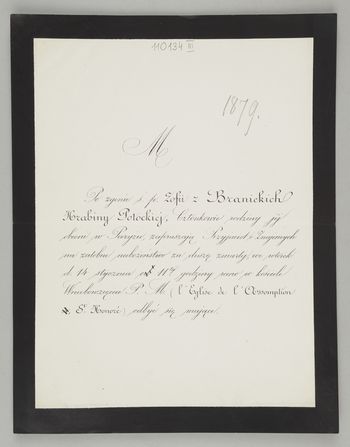 110134 III
1879.
M
Po zgonie ś. p. Zofii z Branickich
Hrabiny Potockiej, Członkowie rodziny jej
obecni w Paryżu, zapraszają Przyjaciół i Znajomych
na żałobne nabożeństwo za duszę zmarłej, we wtorek
d. 14 stycznia o 11ej godzinie rano w kościele
Wniebowzięcia P. M. (l'Eglise de l'Assomption
St. Honoré) odbyć się mające.